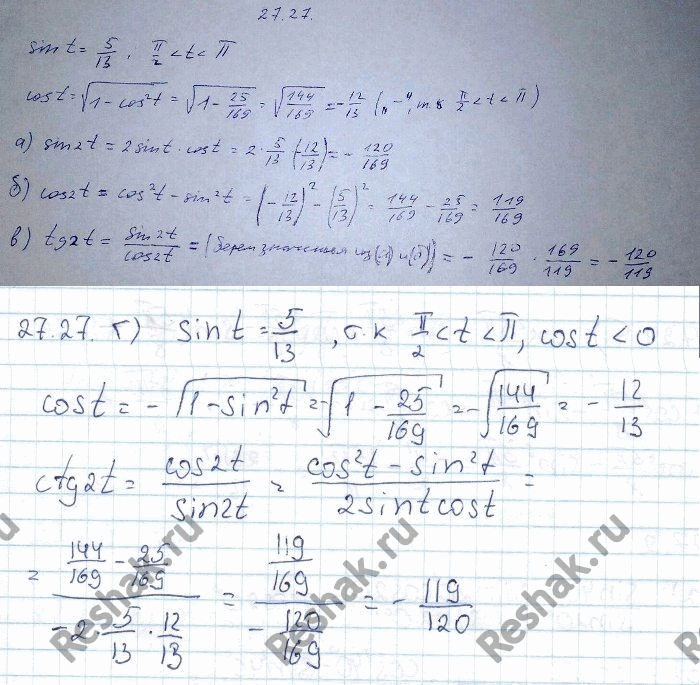 27.27.
sin t = 5/13, π/2 < t < π
cos t = √(1 - cos²t) = √(1 - 25/169) = √(144/169) = -12/13 („-“, т.к π/2 < t < π)
а) sin2t = 2sint · cost = 2 · 5/13 (-12/13) = - 120/169
б) cos2t = cos²t - sin²t = (-12/13)² - (5/13)² = 144/169 - 25/169 = 119/169
в) tg2t = sin2t/cos2t = (берем значения из (а) и (б)) = - 120/169 · 169/119 = - 120/119
27.27. г) sin t = 5/13, т.к π/2 < t < π, cos t < 0
cos t = - √(1 - sin²t) = -√(1 - 25/169) = -√(144/169) = - 12/13
ctg2t = cos2t/sin2t = (cos²t - sin²t)/(2sintcost) =
= (144/169 - 25/169)/(-2 · 5/13 · 12/13) = (119/169)/(- 120/169) = - 119/120
Reshak.ru Reshak.ru Reshak.ru